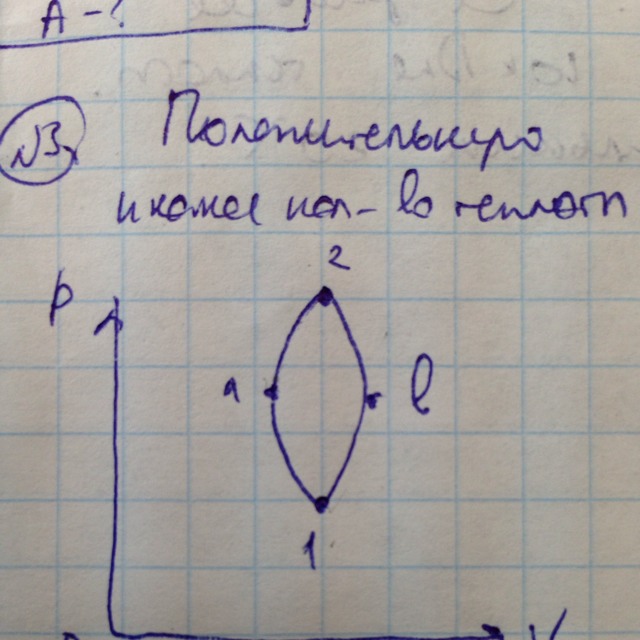 A-?
№3
Положительную
и какое кол-во теплоты
2
p
a
b
1
V